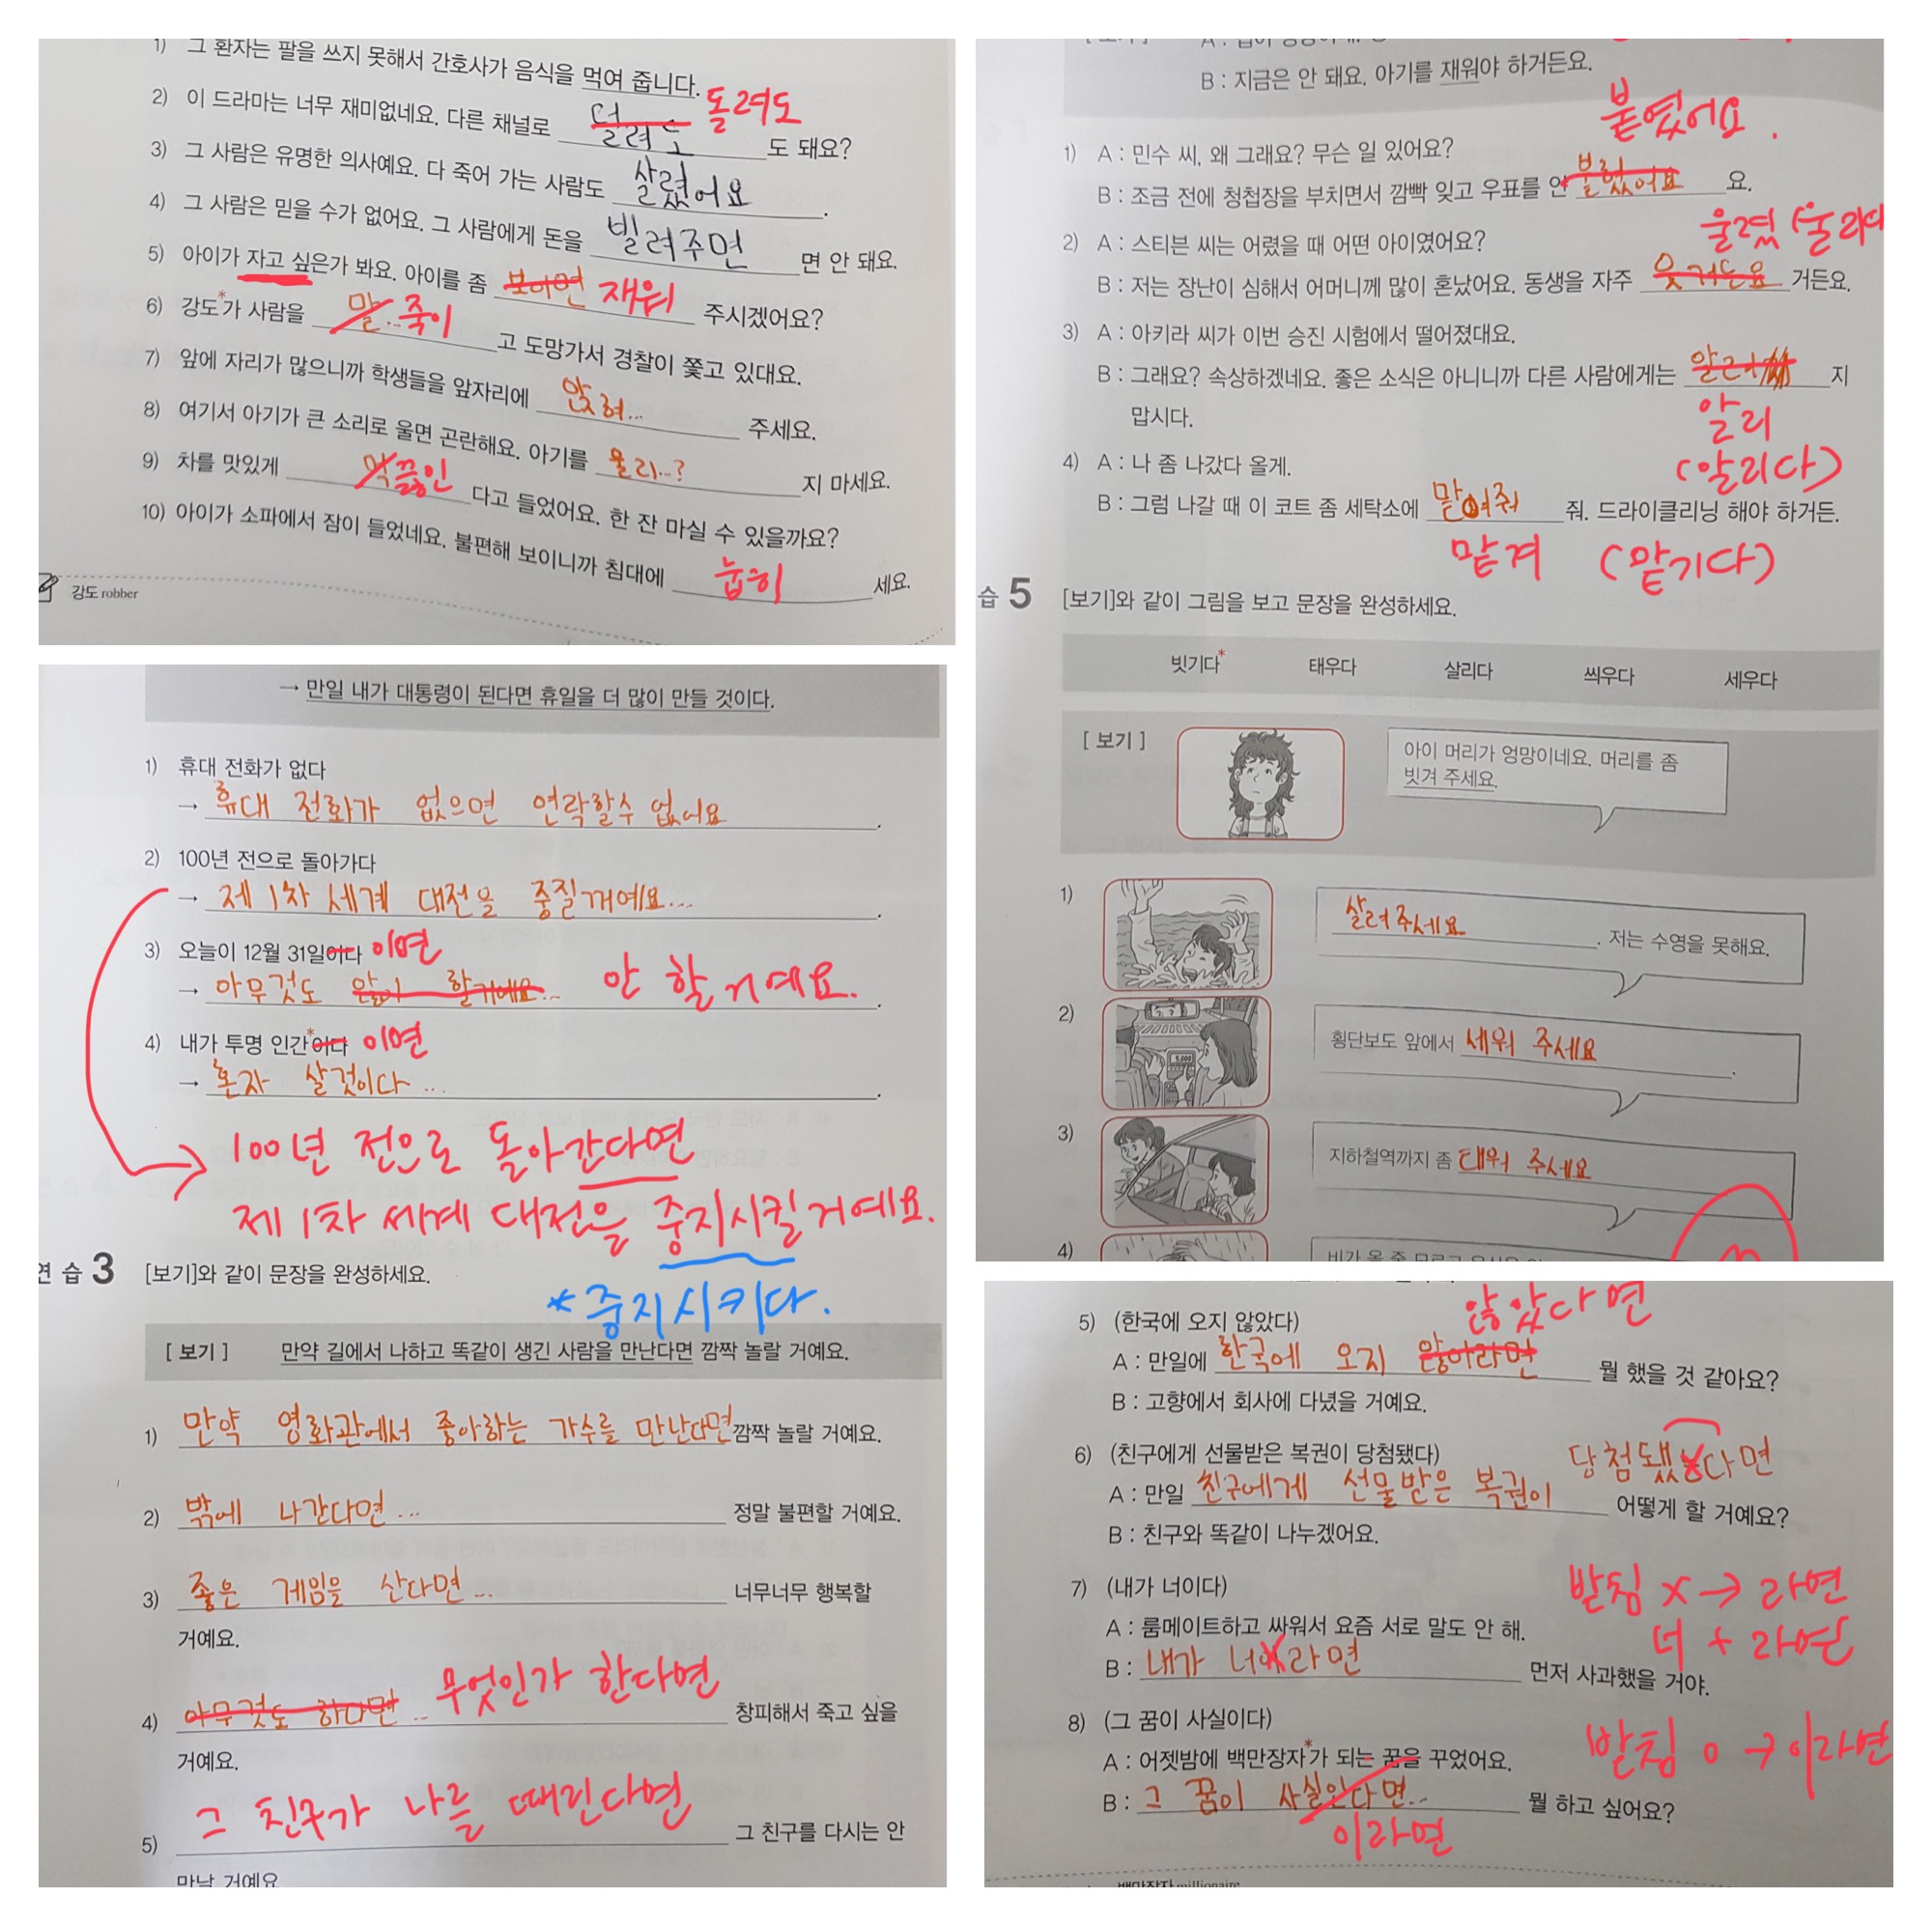 1) 그 환자는 팔을 쓰지 못해서 간호사가 음식을 먹여 줍니다.
2) 이 드라마는 너무 재미없네요. 다른 채널로 덜려도 돌려도 도 돼요?
3) 그 사람은 유명한 의사예요. 다 죽어 가는 사람도 살렸어요.
4) 그 사람은 믿을 수가 없어요. 그 사람에게 돈을 빌려주면 면 안 돼요.
5) 아이가 자고 싶은가 봐요. 아이를 좀 보이면 재워 주시겠어요?
6) 강도*가 사람을 말... 죽이 고 도망가서 경찰이 쫓고 있대요.
7) 앞에 자리가 많으니까 학생들을 앞자리에 앉혀... 주세요.
8) 여기서 아기가 큰 소리로 울면 곤란해요. 아기를 울리...? 지 마세요.
9) 차를 맛있게 끓인 다고 들었어요. 한 잔 마실 수 있을까요?
10) 아이가 소파에서 잠이 들었네요. 불편해 보이니까 침대에 눕히 세요.
강도 robber
→ 만일 내가 대통령이 된다면 휴일을 더 많이 만들 것이다.
1) 휴대 전화가 없다
→ 휴대 전화가 없으면 연락할수 없어요.
2) 100년 전으로 돌아가다
→ 제 1차 세계 대전을 중질꺼예요....
3) 오늘이 12월 31일이다 이면
→ 아무것도 할거예요... 안 할 거예요.
4) 내가 투명 인간*이다 이면
→ 혼자 살것이다 ...
100년 전으로 돌아간다면
제 1차 세계 대전을 중지시킬거예요.
*중지시키다.
연습 3 [보기]와 같이 문장을 완성하세요.
[보기] 만약 길에서 나하고 똑같이 생긴 사람을 만난다면 깜짝 놀랄 거예요.
1) 만약 영화관에서 좋아하는 가수를 만난다면 깜짝 놀랄 거예요.
2) 밖에 나간다면... 정말 불편할 거예요.
3) 좋은 게임을 산다면... 너무너무 행복할
거예요.
4) 아무것도 하다면 .. 무엇인가 한다면 창피해서 죽고 싶을
거예요.
5) 그 친구가 나를 때린다면 그 친구를 다시는 안
만날 거예요
B : 지금은 안 돼요. 아기를 재워야 하거든요.
붙였어요.
1) A : 민수 씨, 왜 그래요? 무슨 일 있어요?
B : 조금 전에 청첩장을 부치면서 깜빡 잊고 우표를 안 요.
울렸 (울리다
2) A : 스티븐 씨는 어렸을 때 어떤 아이였어요?
B : 저는 장난이 심해서 어머니께 많이 혼났어요. 동생을 자주 웃거든요 거든요.
3) A : 아키라 씨가 이번 승진 시험에서 떨어졌대요.
B : 그래요? 속상하겠네요. 좋은 소식은 아니니까 다른 사람에게는 지
맙시다.
알리
(알리다)
4) A : 나 좀 나갔다 올게.
B : 그럼 나갈 때 이 코트 좀 세탁소에 맡여줘 줘. 드라이클리닝 해야 하거든.
맡겨 (맡기다)
습 5 [보기]와 같이 그림을 보고 문장을 완성하세요.
빗기다* 태우다 살리다 씌우다 세우다
[보기]
아이 머리가 엉망이네요. 머리를 좀
빗겨 주세요.
1) 살려주세요. 저는 수영을 못해요.
2) 횡단보도 앞에서 세워 주세요.
3) 지하철역까지 좀 태워 주세요
4)
않았다면
5) (한국에 오지 않았다)
A : 만일에 한국에 오지 않아라면 뭘 했을 것 같아요?
B : 고향에서 회사에 다녔을 거예요.
6) (친구에게 선물받은 복권이 당첨됐다)
당첨됐다면
A : 만일 친구에게 선물받은 복권이 어떻게 할 거예요?
B : 친구와 똑같이 나누겠어요.
7) (내가 너이다)
받침 x → 라면
너 + 라면
A : 룸메이트하고 싸워서 요즘 서로 말도 안 해.
B : 내가 너이라면 먼저 사과했을 거야.
8) (그 꿈이 사실이다)
받침 o → 이라면
A : 어젯밤에 백만장자*가 되는 꿈을 꾸었어요.
B : 그 꿈이 사실인다면... 뭘 하고 싶어요?
이라면
백만장자 millionaire